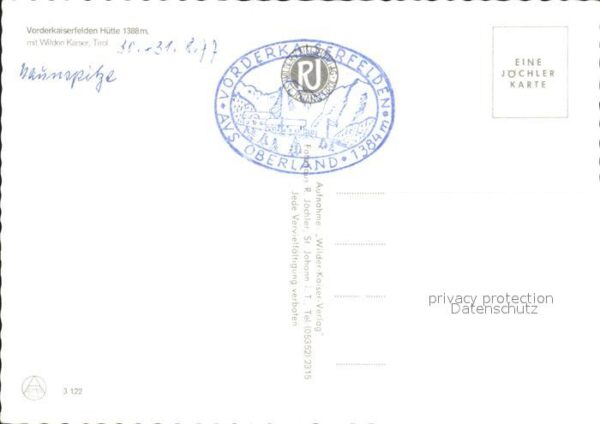 Vorderkaiserfelden Hütte 1388 m.
mit Wilden Kaiser, Tirol
30.-31.8.77
Naunspitze
VORDERKAISERFELDEN
AVS. OBERLAND • 1384 m •
RJ
EINE
JÖCHLER
KARTE
Aufnahme: „Wilder-Kaiser-Verlag"
R. Jöchler, St. Johann i. T., Tel. (05352) 2315
Jede Vervielfältigung verboten
privacy protection
Datenschutz
3 122